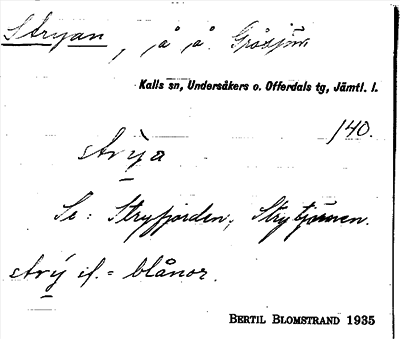 Stryan, å å. Gråsjön
Kalls sn, Undersåkers o. Offerdals tg, Jämtl. l.
140.
strỳa
Se: Stryfjorden, Strytjärnen.
strý if. = blånor.
BERTIL BLOMSTRAND 1935